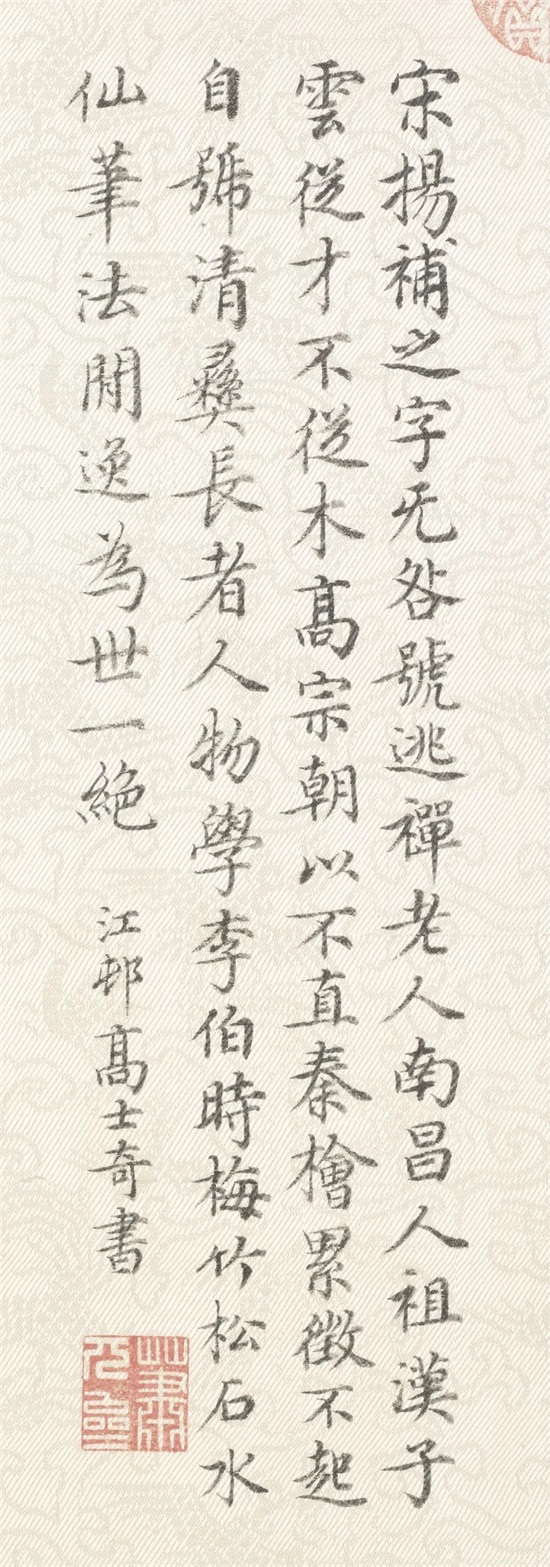 宋揚補之字无咎號逃禪老人南昌人祖漢子
雲從才不從木髙宗朝以不直秦檜累徵不起
自號清彝長者人物學李伯時梅竹松石水
仙筆法閒逸為世一絶
江邨髙士奇書